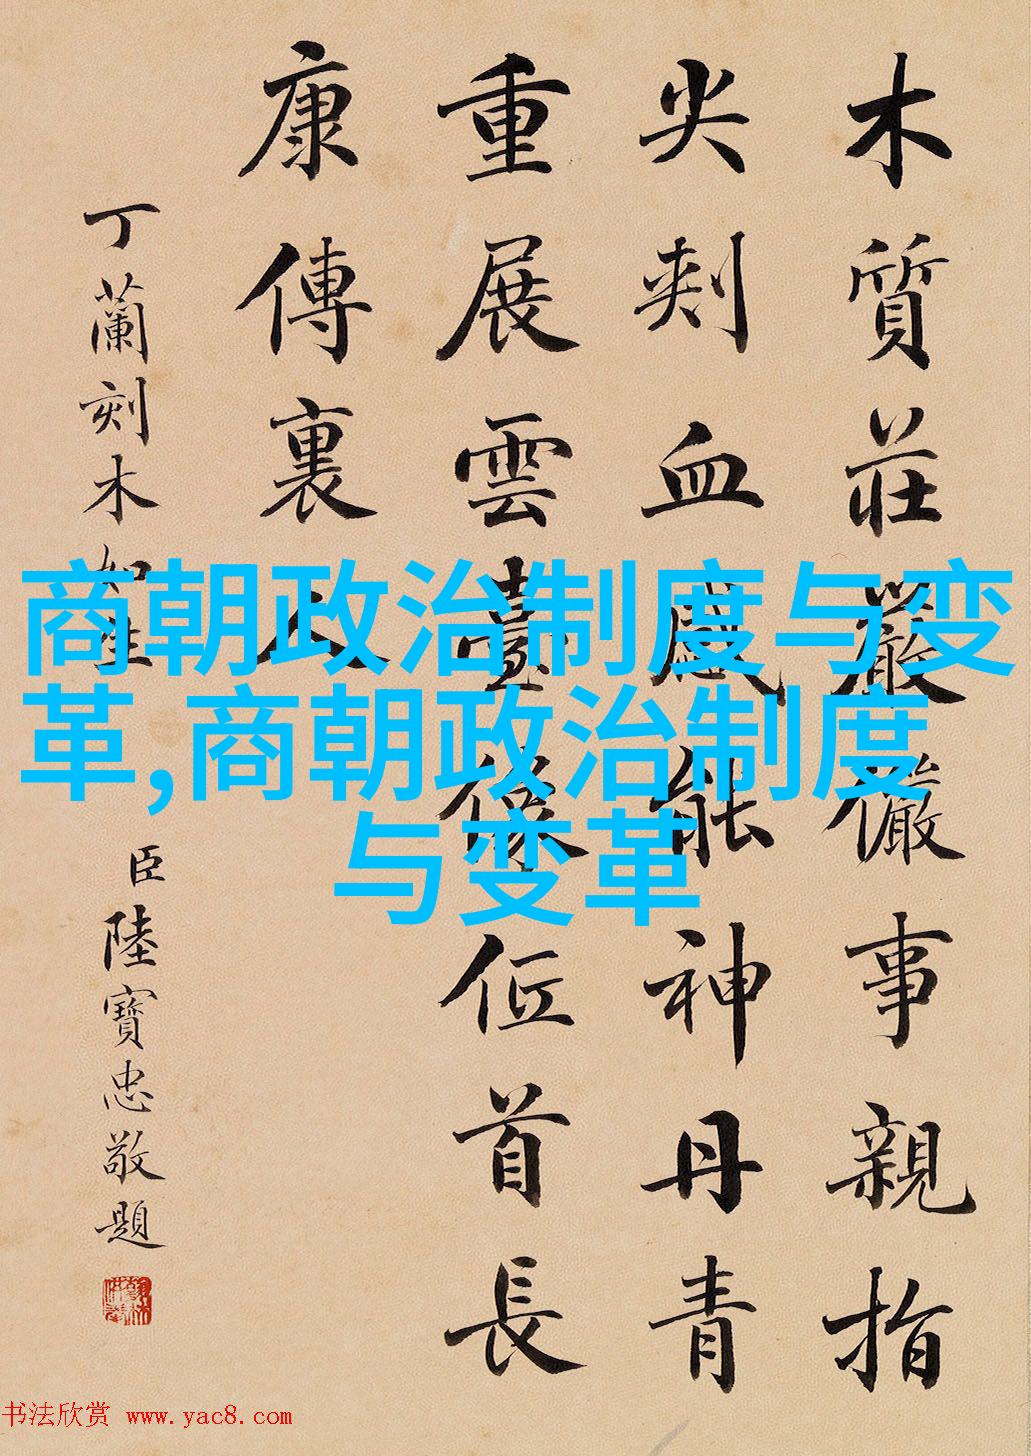 木質莊嚴儼事親指
尖刾血感能神丹青
重展雲臺像位首長
康傳裏人
丁蘭刻木如生
臣陸寶忠敬題
商朝政治制度与变
革,商朝政治制度
与变革
书法欣赏 www.yac8.com